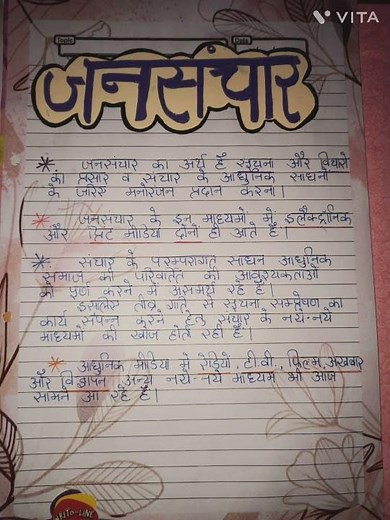 VITA
Date
जनसंचार
* जनसंचार का अर्थ है सूचना और विचारों
का प्रसार व संचार के आधुनिक साधनों
के जरिए मनोरंजन प्रदान करना।
* जनसंचार के इन माध्यमों में इलैक्ट्रानिक
और प्रिंट मीडिया दोनों ही आते हैं।
* संचार के परम्परागत साधन आधुनिक
समाज की परिवर्तित की आवश्यकताओं
को पूर्ण करने में असमर्थ रहे हैं।
इसलिए तीव्र गति से सूचना सम्प्रेषण का
कार्य संपन्न करने हेतु संचार के नये-नये
माध्यमों की खोज होती रही हैं।
* आधुनिक मीडिया में रेडियो, टी.वी., फिल्म, अखबार
और विज्ञापन अन्य नये-नये माध्यम भी आज
सामने आ रहे हैं।